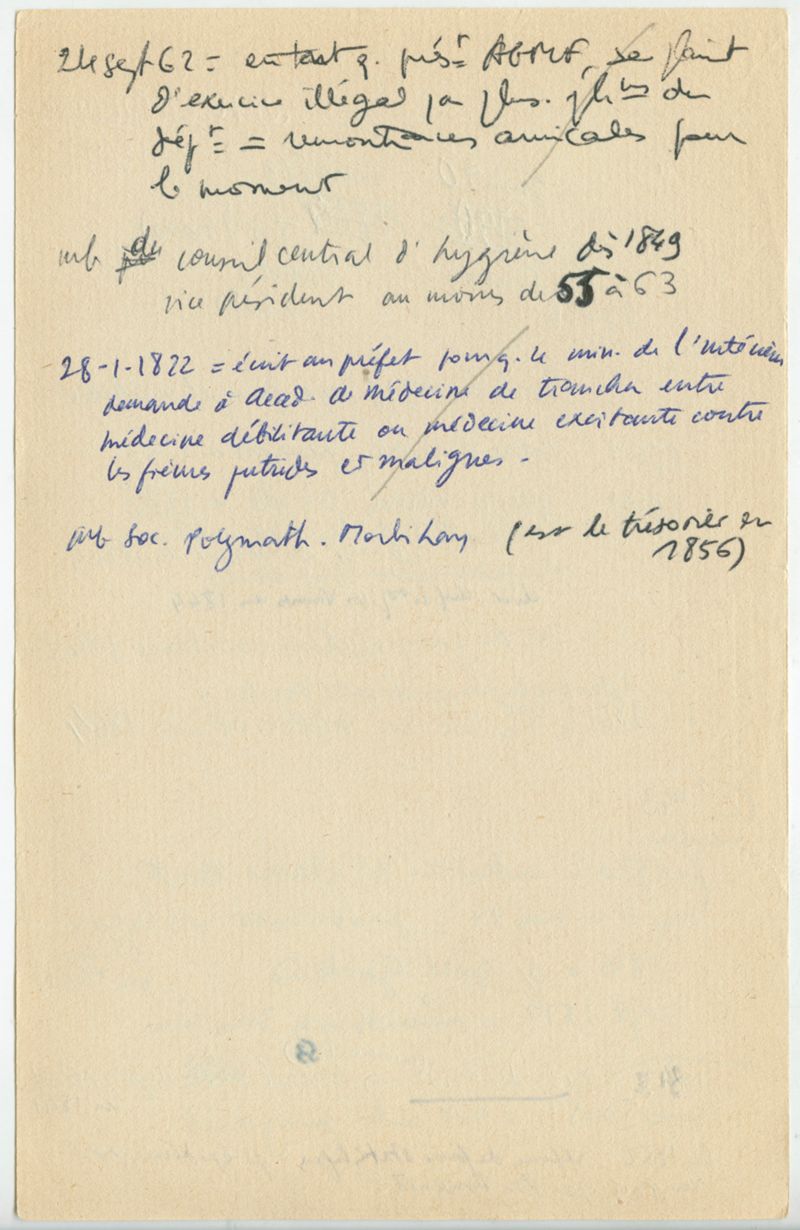 24 sept 62 = en tant q. prést AGMF, se plaint
d'exercice illégal par plus. phiens du
dépt = remontrances amicales pour
le moment
mb du conseil central d'hygiène dès 1849
vice président au moins de 55 à 63
28-1-1822 = écrit au préfet pour q. le min. de l'intérieur
demande à Acad. de médecine de trancher entre
médecine débilitante ou médecine excitante contre
les fièvres putrides et malignes -
mb Soc. Polymath. Morbihan (est le trésorier en
1856)